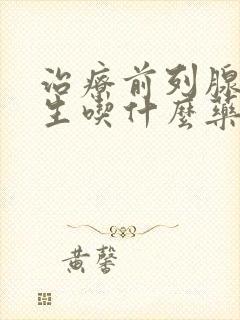 治療前列腺
生喫什麼藥
黃馨